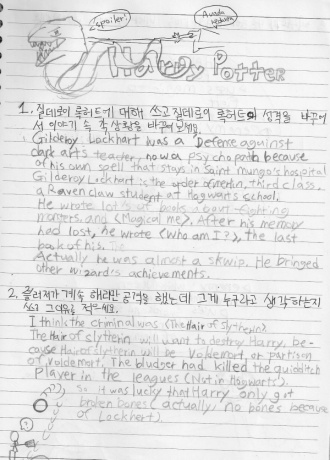 spoiler!
Avada kedabra
Harry Potter
1. 질데로이 록허트에 대해 쓰고 질데로이 록허트의 성격을 바꾸어
서 이야기 속 각 상황을 바꾸어 보세요.
Gilderoy Lockhart was a Defence against
dark arts teacher, now a psychopath because
of his own spell that stays in Saint mungo's hospital
Gilderoy Lockhart is the order of merlin, third class,
a Ravenclaw student at Hogwarts school.
He wrote lots of books about fighting
mongers, and (Magical me), After his memory
had lost, he wrote (Who am I?), the last
book of his.
Actually he was almost a skwip. He bringed
other wizard's achievements.
2. 블러저가 계속 해리만 공격을 했는데 그게 누구라고 생각하는지
쓰고 그 이유를 적으세요.
I think the criminal was (The Hair of slytherin)
The Hair of slytherin will want to destroy Harry, be-
cause Hair of slytherin will be Voldemort, or partison
of voldemort. The bludger had killed the quidditch
Player in the leagues (Not in Hogwarts).
So it was lucky that Harry only got
broken bones (actually, no bones because
of Lockhart)